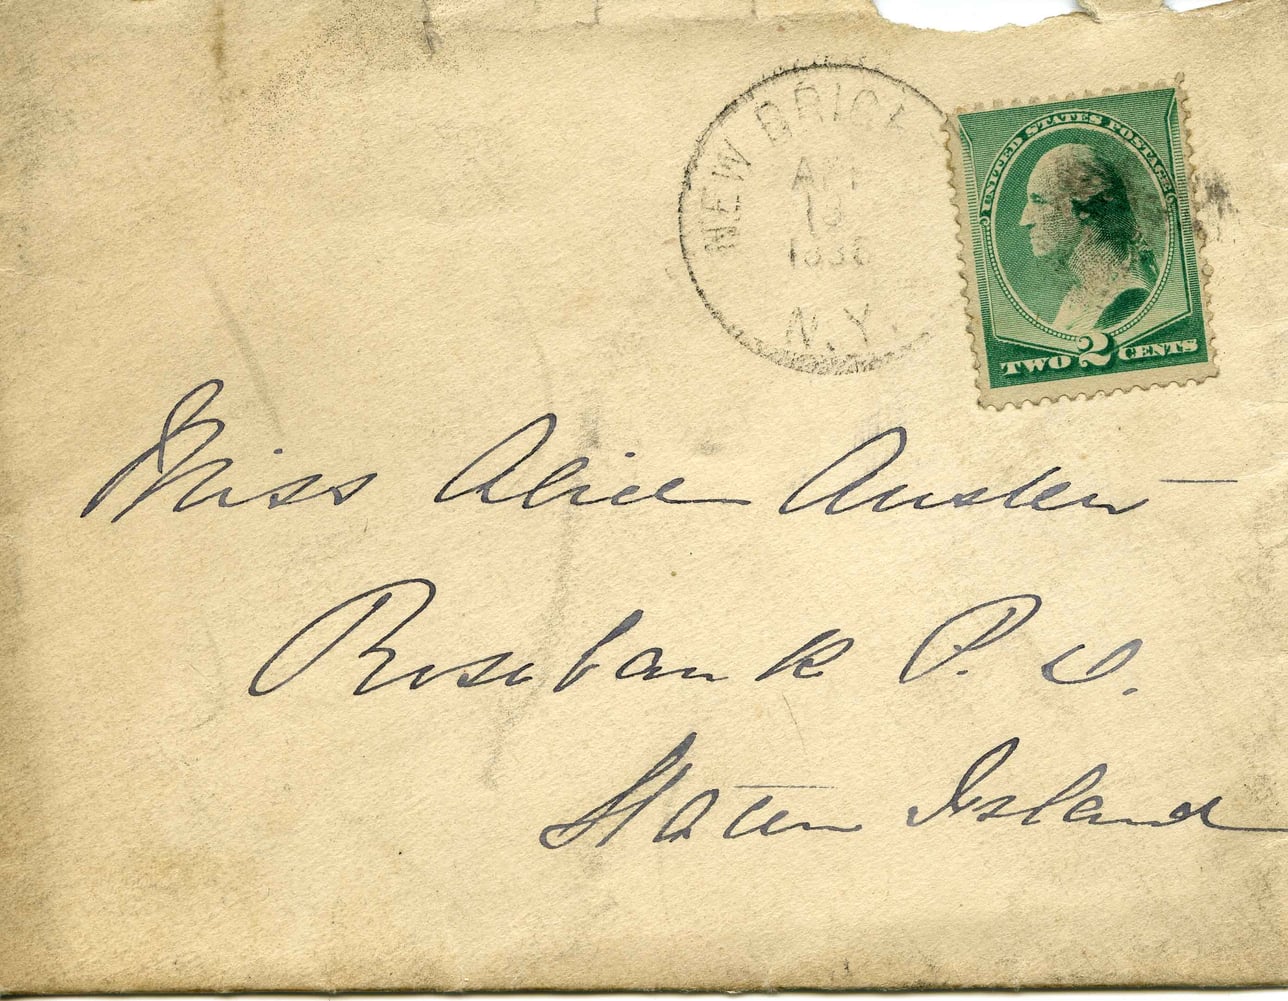 NEW BRIG
13
N.Y.
UNITED STATES POSTAGE
TWO 2 CENTS
Miss Alice Austen
Rosebank P. O.
Staten Island